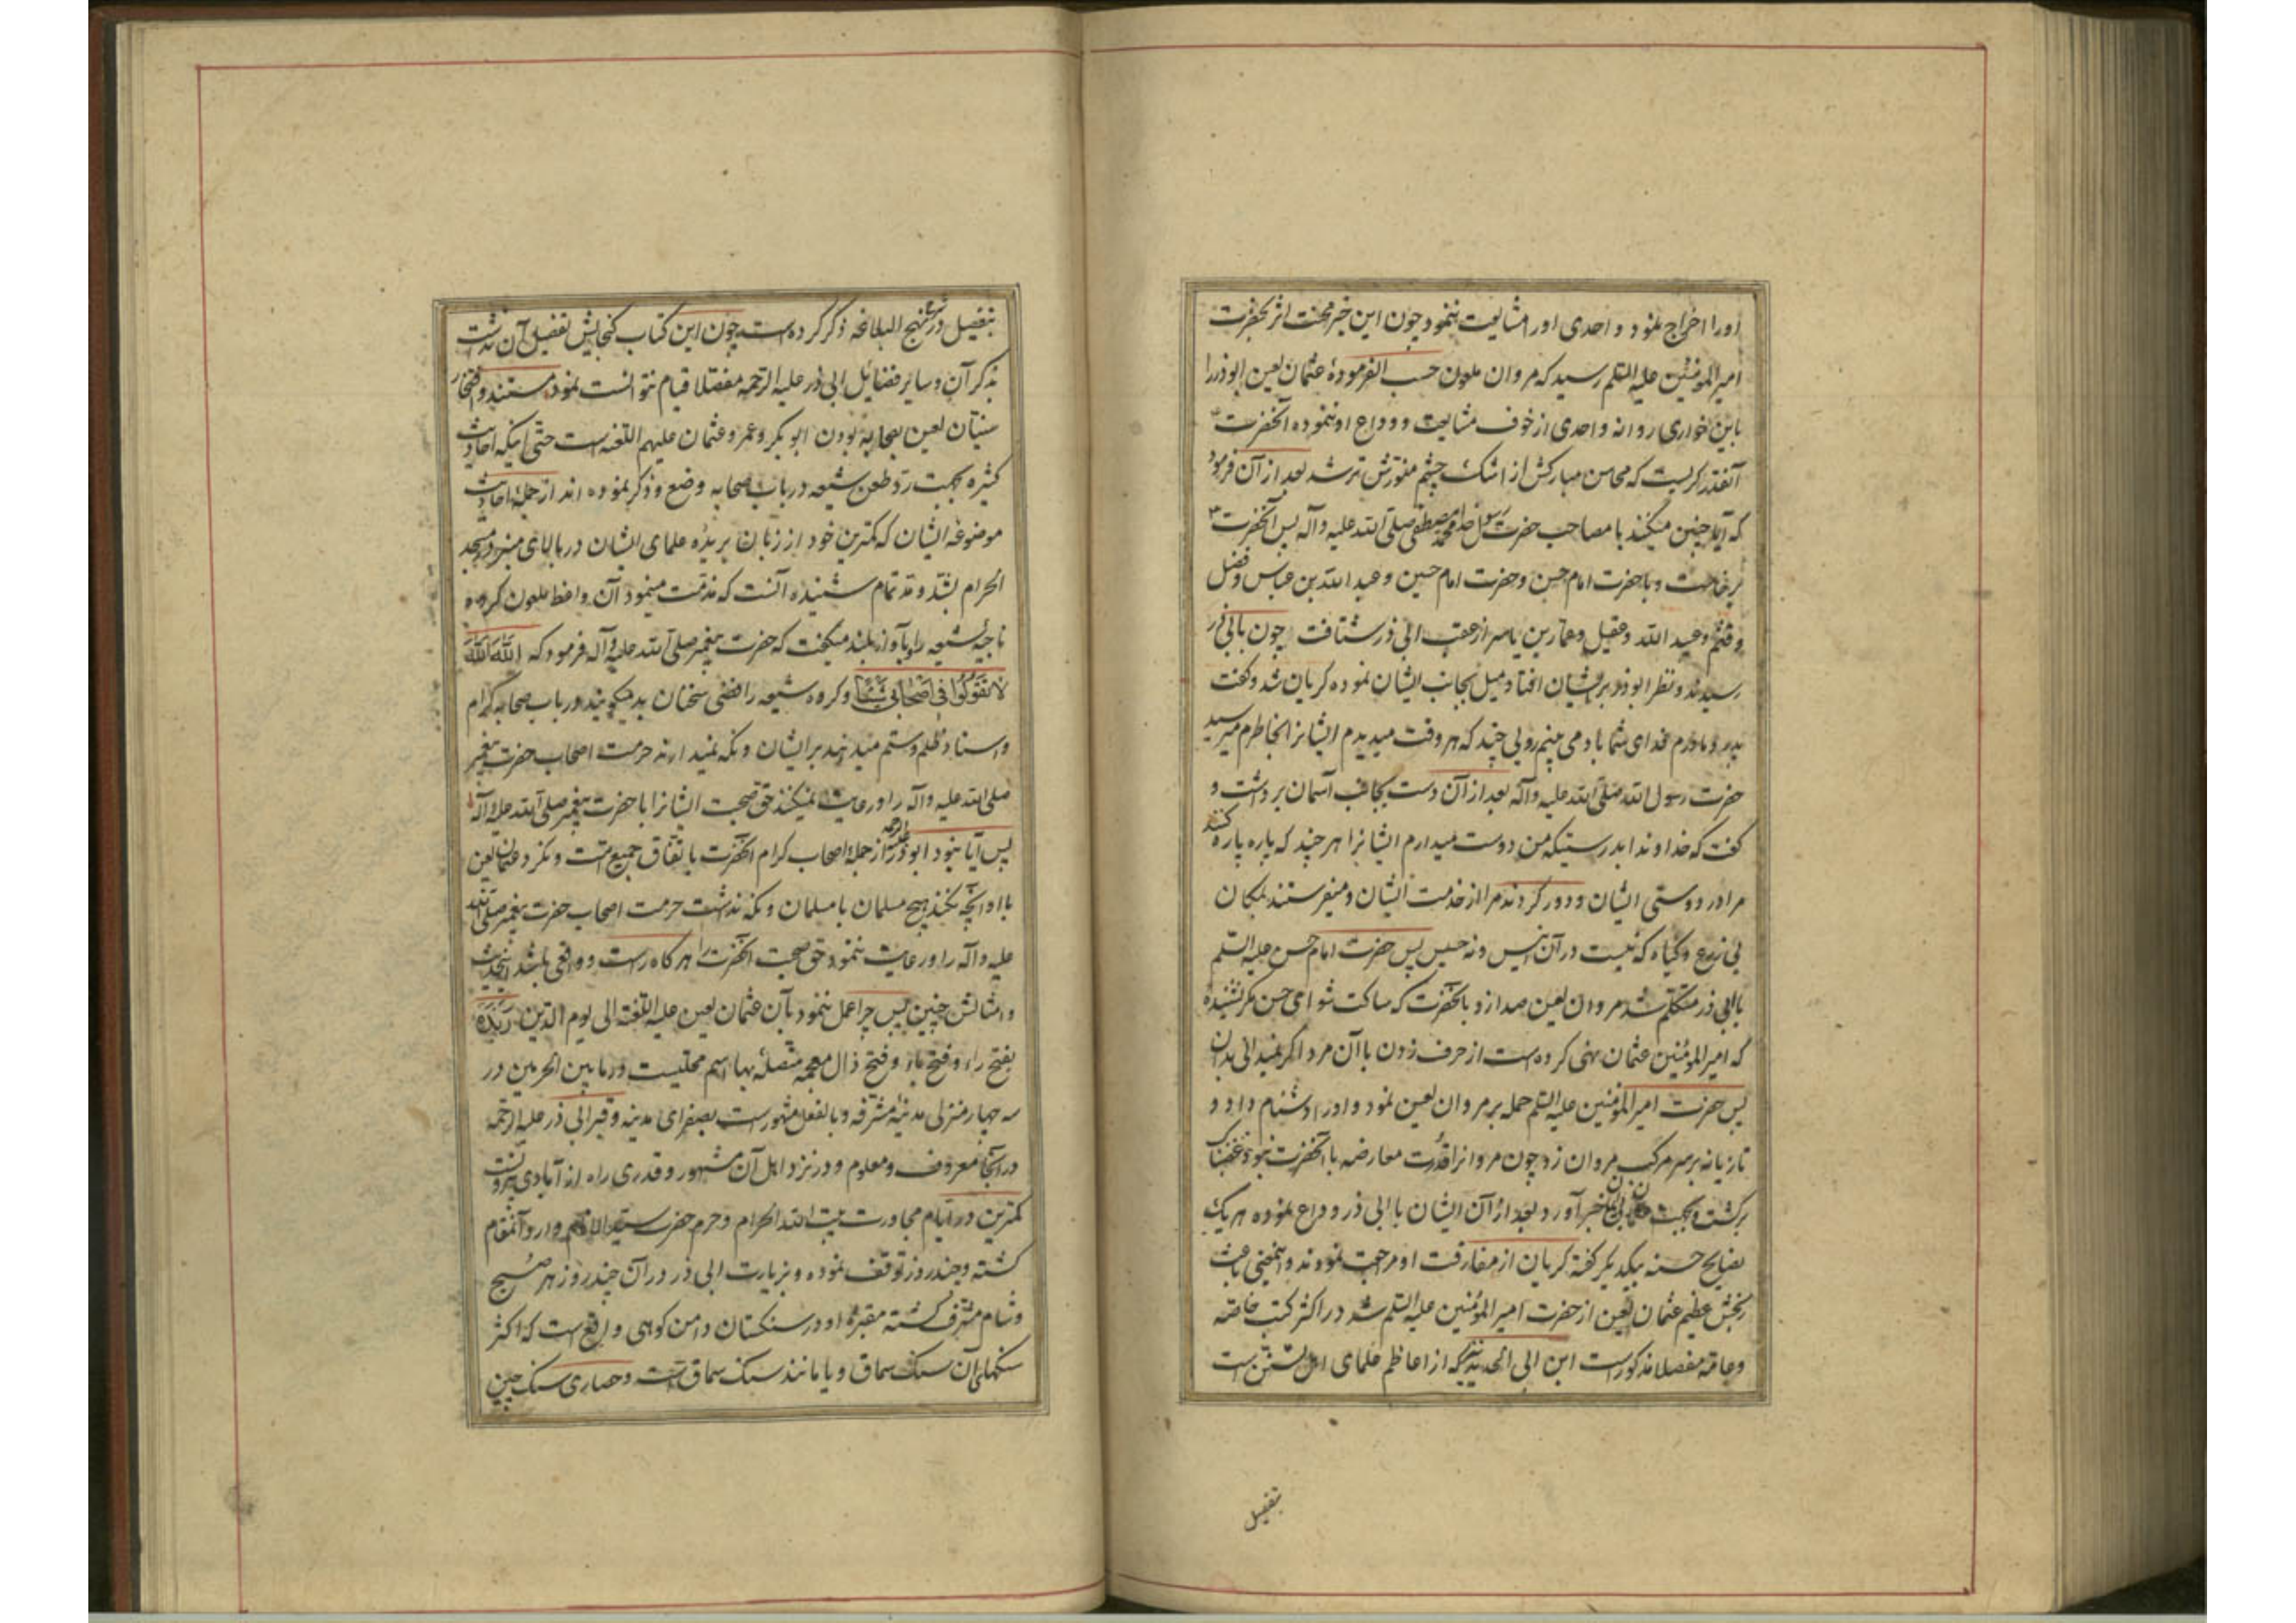 اورا اخراج نمود و احدی اورا مشایعت ننمود چون این خبر محنت اثر بحضرت
امیرالمؤمنین علیه السلم رسید که مروان ملعون حسب الفرمودهٔ عثمان لعین ابوذر را
باین خواری روانه و احدی از خوف مشایعت و وداع او ننموده آنحضرت
آنقدر گریست که محاسن مبارکش از اشک چشم منورش تر شد بعد از آن فرمود
که آیا چنین میکنند با مصاحب حضرت رسول خدا محمد مصطفی صلی الله علیه و آله پس آنحضرت
برخاست و با حضرت امام حسن و حضرت امام حسین و عبد الله بن عباس و فضل
و قثم و عبید الله و عقیل و عمار بن یاسر از عقب ابی ذر شتافت چون بابی ذر
رسیدند و نظر ابوذر بر ایشان افتاد میل بجانب ایشان نموده گریان شد و گفت
پدر و مادرم فدای شما باد می بینم رویی چند که هر وقت میدیدم ایشانرا بخاطرم میرسید
حضرت رسول الله صلی الله علیه و آله بعد از آن دست بجانب آسمان برداشت و
گفت که خداوندا بدرستیکه من دوست میدارم ایشانرا هر چند که پاره پاره کنند
مرا در دوستی ایشان و دور کردند مرا از خدمت ایشان و میفرستند بمکان
بی زرع و گیاه که نیست در آن انیس و نه جلیس پس حضرت امام حسن علیه السلم
بابی ذر متکلم شد مروان لعین صدا زد بآنحضرت که ساکت شو ای حسن مگر نشنیده
که امیرالمؤمنین عثمان نهی کرده است از حرف زدن با آن مرد اگر نمیدانی بدان
پس حضرت امیرالمؤمنین علیه السلم حمله بر مروان لعین نمود و اورا دشنام داد و
تازیانه بر سر مرکب مروان زد چون مروانرا قدرت معارضه با آنحضرت نبود غضبناک
برگشت و بجهت عثمان خبر آورد بعد از آن ایشان با ابی ذر وداع نموده هر یک
نصایح حسنه بیکدیگر گفته گریان از مفارقت او مراجعت نمودند و اینمعنی باعث
رنجش عظیم عثمان لعین از حضرت امیرالمؤمنین علیه السلم شد در اکثر کتب خاصه
و عامه مفصلا مذکور است ابن ابی الحدید که از اعاظم علمای اهل تسنن است
بتفصیل
بتفصیل در شرح نهج البلاغه ذکر کرده است چون این کتاب گنجایش تفصیل آن نداشت
بذکر آن و سایر فضایل ابی ذر علیه الرحمه مفصلا قیام نتوانست نمود مستند و افتخار
سنیان لعین بصحابه بودن ابوبکر و عمر و عثمان علیهم اللعنه است حتی اینکه احادیث
کثیره بجهت رد طعن شیعه در باب صحابه وضع و ذکر نموده اند از جمله احادیث
موضوعهٔ ایشان که کمترین خود از زبان بریدهٔ علمای ایشان در بالای منبر در مسجد
الحرام شنیده آنست که مذمت مینمود آن واعظ ملعون گروه
ناجیه شیعه را و بآواز بلند میگفت که حضرت پیغمبر صلی الله علیه و آله فرمود که الله الله
لا تقولوا فی اصحابی شیئا و گروه شیعه رافضی سخنان بد میگویند در باب صحابه کرام
و اسناد ظلم و ستم میدهند بر ایشان و نگه نمیدارند حرمت اصحاب حضرت پیغمبر
صلی الله علیه و آله را و رعایت نمیکنند حق صحبت ایشانرا با حضرت پیغمبر صلی الله علیه و آله
پس آیا نبود ابوذر علیه الرحمه از جمله اصحاب کرام آنحضرت با تفاق جمیع امت و نکرد عثمان لعین
با او آنچه نکند هیچ مسلمان با مسلمان و نگه نداشت حرمت اصحاب حضرت پیغمبر صلی الله
علیه و آله را و رعایت ننمود حق صحبت آنحضرت را هر گاه راست و واقعی باشد این حدیث
و امثالش چنین پس چرا عمل ننمود بآن عثمان لعین علیه اللعنه الی یوم الدین ربذه
بفتح راء و فتح باء و فتح ذال معجمه متصله بهاء اسم محلیست در ما بین الحرمین در
سه چهار منزلی مدینهٔ مشرفه و بالفعل مشهور است بصفرای مدینه و قبر ابی ذر علیه الرحمه
در آنجا معروف و معلوم و در نزد اهل آن مشهور و قدری راه از آبادی بیرونست
کمترین در ایام مجاورت بیت الله الحرام و حرم حضرت سید الانام وارد آنمقام
گشته و چند روز توقف نموده و بزیارت ابی ذر در آن چند روز هر صبح
و شام مشرف گشته مقبرهٔ او در سنگستان دامن کوهی واقع است که اکثر
سنگهای آن سنگ سماق و یا مانند سنگ سماق است و حصاری سنگ چین